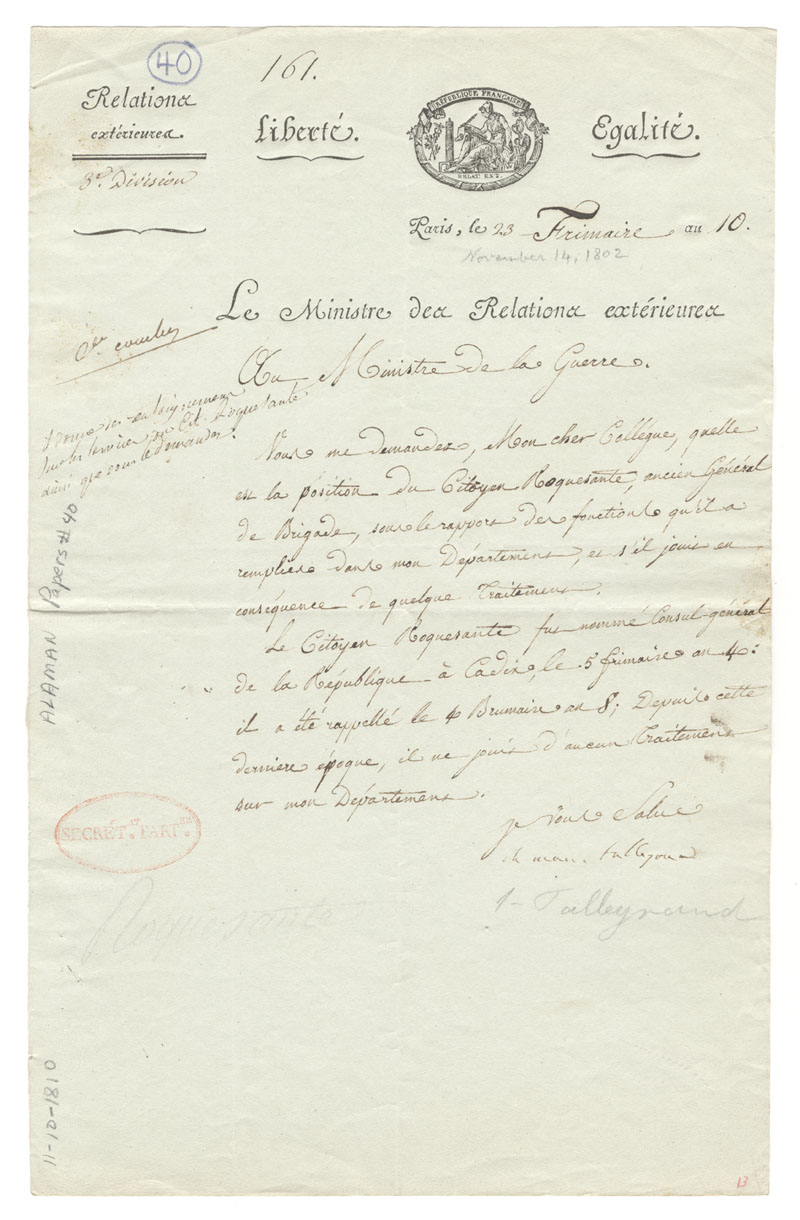 40
161.
Relations
extérieures.
3e. Division
Liberté.
RÉPUBLIQUE FRANÇAISE
RELAT. EXT.
Egalité.
Paris, le 23 Frimaire an 10.
November 14, 1802
Le Ministre des Relations extérieures
Au Ministre de la Guerre.
Donne des
sur les services du Cit. Roquesante
ainsi que vous le demandez.
Vous me demandez, Mon cher Collègue, quelle
est la position du Citoyen Roquesante, ancien Général
de Brigade, sous le rapport des fonctions qu'il a
remplies dans mon Département, et s'il jouit en
conséquence de quelque Traitement.
Le Citoyen Roquesante fut nommé Consul-général
de la République à Cadix, le 5 frimaire an 4:
il a été rappellé le 4 Brumaire an 8; Depuis cette
dernière époque, il ne jouit d'aucun Traitement
sur mon Département.
je vous Salue
ch mau. talleyrand
1- Talleyrand
SECRÉT.T PART.ER
Roquesante
ALAMAN Papers # 40
11-12-1810
13